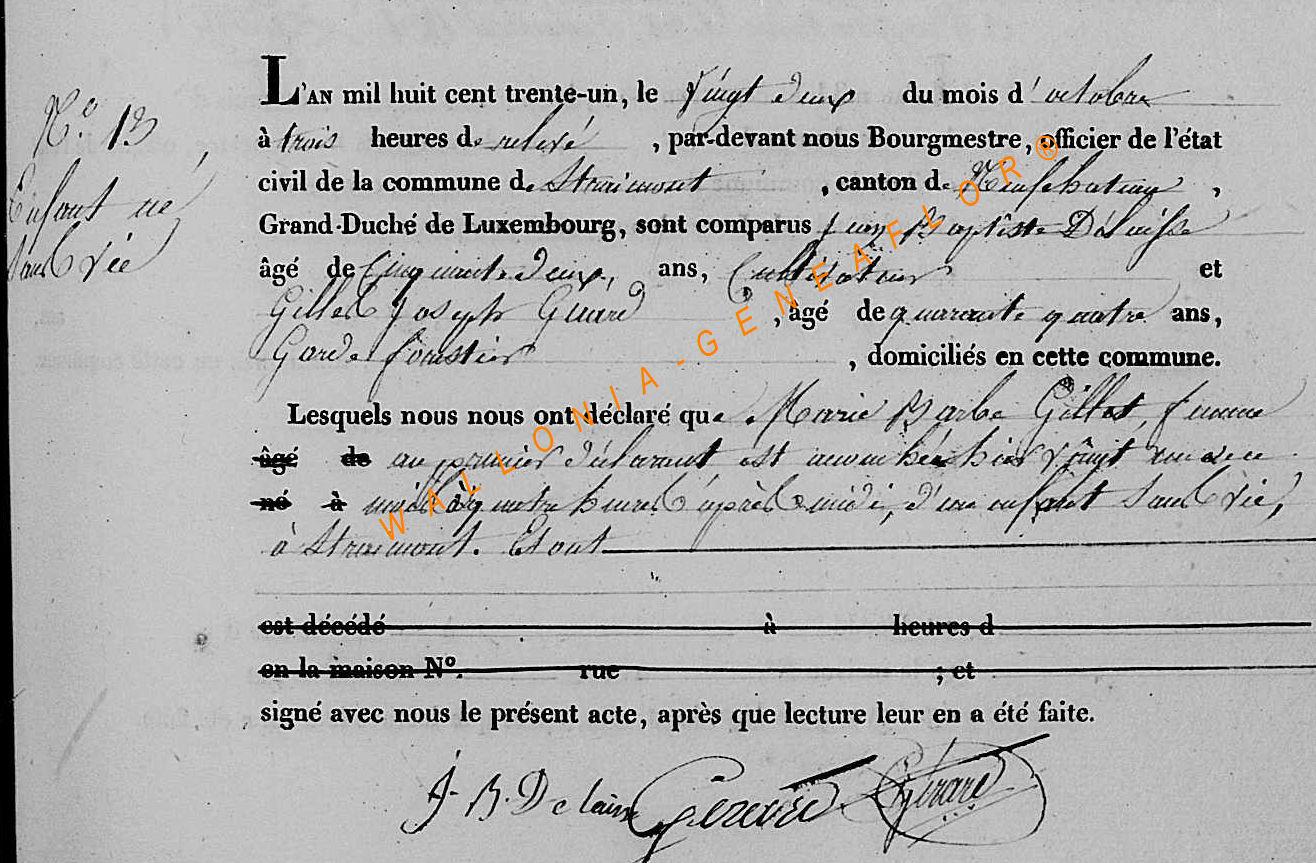 N.o 13
Enfant né
sans vie
L'AN mil huit cent trente-un, le vingt deux du mois d'octobre
à trois heures de relevé, par-devant nous Bourgmestre, officier de l'état
civil de la commune de Straimont, canton de Neufchateau,
Grand-Duché de Luxembourg, sont comparus Jean Baptiste Delaisse
âgé de Cinquante deux, ans, Cultivateur et
Gilles Joseph Girard, âgé de quarante quatre ans,
Garde forestier, domiciliés en cette commune.
Lesquels nous nous ont déclaré que Marie Barbe Gillet, femme
âgé de au premier déclarant est accouchée hier vingt un de ce
né à mois à quatre heures d'après midi, d'un enfant sans vie,
à Straimont. Et ont
est décédé à heures d
en la maison N°. rue ; et
signé avec nous le présent acte, après que lecture leur en a été faite.
J. B. Delaisse Girard
WALLONIA-GENEAFLOR®